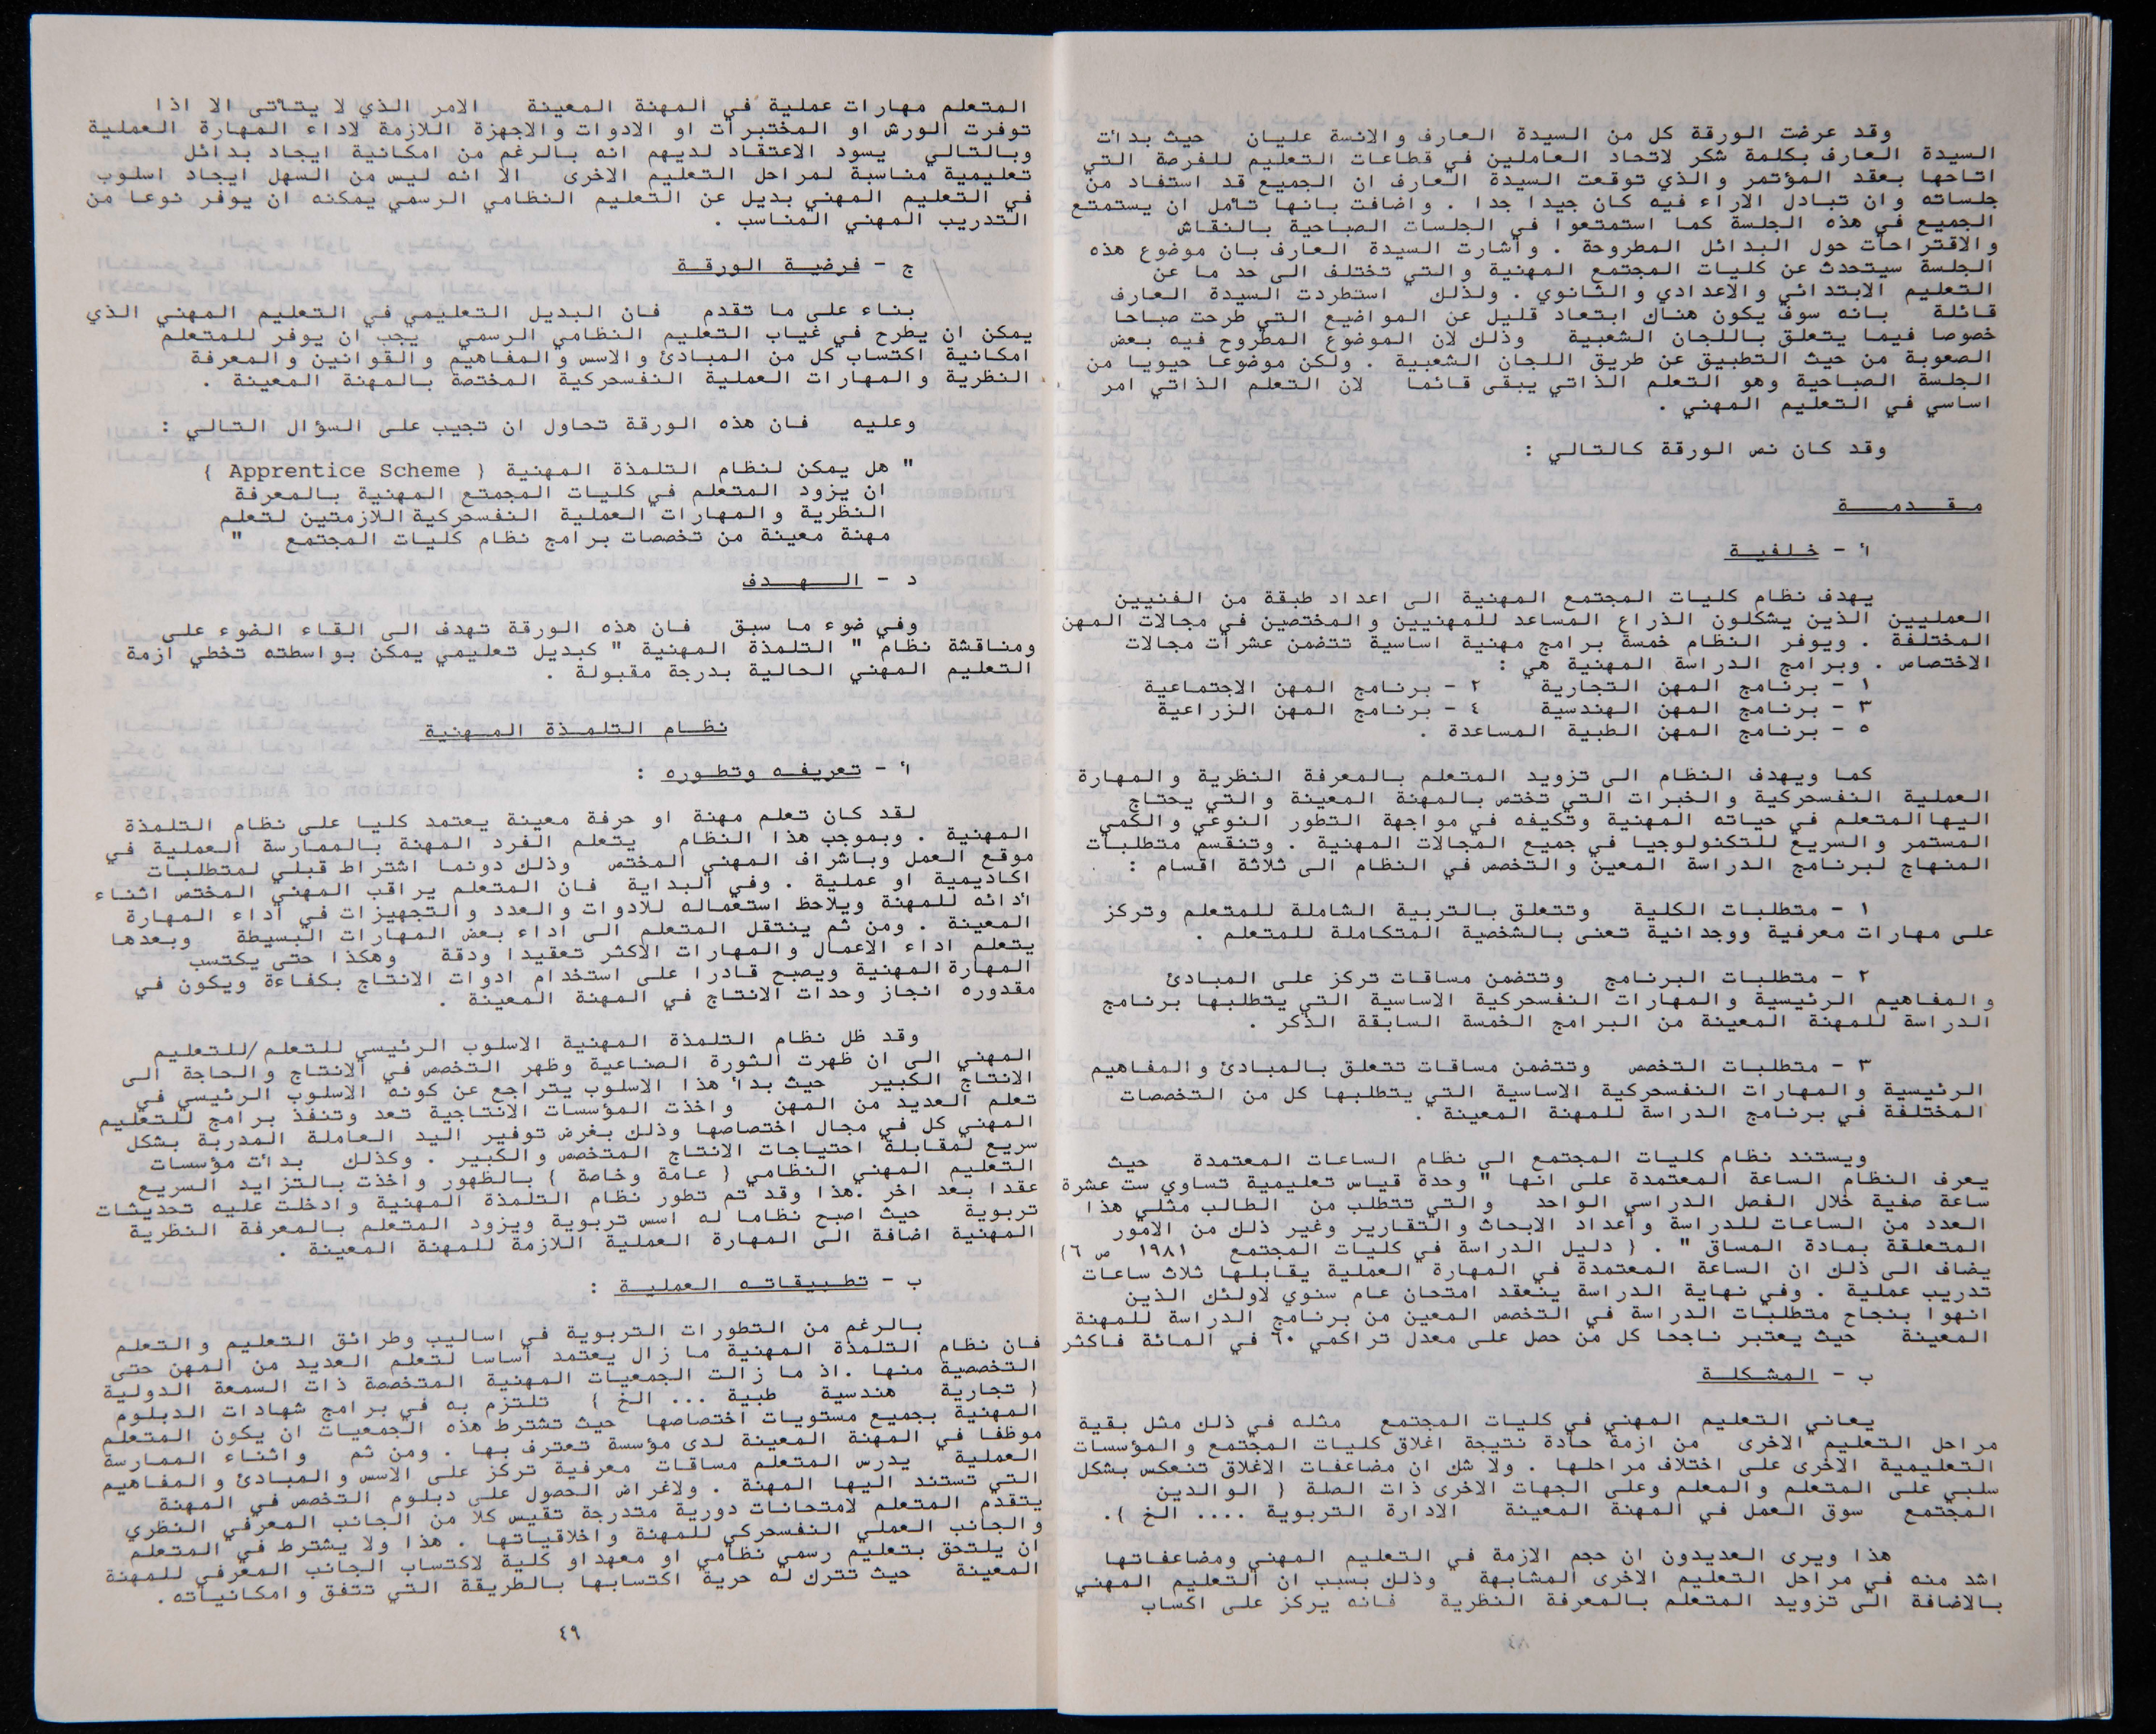 وقد عرضت الورقة كل من السيدة العارف والانسة عليان حيث بدأت
السيدة العارف بكلمة شكر لاتحاد العاملين في قطاعات التعليم للفرصة التي
اتاحها بعقد المؤتمر والذي توقعت السيدة العارف ان الجميع قد استفاد من
جلساته وان تبادل الاراء فيه كان جيدا جدا . واضافت بانها تأمل ان يستمتع
الجميع في هذه الجلسة كما استمتعوا في الجلسات الصباحية بالنقاش
والاقتراحات حول البدائل المطروحة . وأشارت السيدة العارف بان موضوع هذه
الجلسة سيتحدث عن كليات المجتمع المهنية والتي تختلف الى حد ما عن
التعليم الابتدائي والاعدادي والثانوي . ولذلك استطردت السيدة العارف
قائلة بانه سوف يكون هناك ابتعاد قليل عن المواضيع التي طرحت صباحا
خصوصا فيما يتعلق باللجان الشعبية وذلك لان الموضوع المطروح فيه بعض
الصعوبة من حيث التطبيق عن طريق اللجان الشعبية . ولكن موضوعا حيويا من
الجلسة الصباحية وهو التعلم الذاتي يبقى قائما لان التعلم الذاتي امر
اساسي في التعليم المهني .
وقد كان نص الورقة كالتالي :
مقدمة
أ - خلفية
يهدف نظام كليات المجتمع المهنية الى اعداد طبقة من الفنيين
العمليين الذين يشكلون الذراع المساعد للمهنيين والمختصين في مجالات المهن
المختلفة . ويوفر النظام خمسة برامج مهنية اساسية تتضمن عشرات مجالات
الاختصاص . وبرامج الدراسة المهنية هي :
١ - برنامج المهن التجارية ٢ - برنامج المهن الاجتماعية
٣ - برنامج المهن الهندسية ٤ - برنامج المهن الزراعية
٥ - برنامج المهن الطبية المساعدة .
كما ويهدف النظام الى تزويد المتعلم بالمعرفة النظرية والمهارة
العملية النفسحركية والخبرات التي تختص بالمهنة المعينة والتي يحتاج
اليها المتعلم في حياته المهنية وتكيفه في مواجهة التطور النوعي والكمي
المستمر والسريع للتكنولوجيا في جميع المجالات المهنية . وتنقسم متطلبات
المنهاج لبرنامج الدراسة المعين والتخصص في النظام الى ثلاثة اقسام :
١ - متطلبات الكلية وتتعلق بالتربية الشاملة للمتعلم وتركز
على مهارات معرفية ووجدانية تعنى بالشخصية المتكاملة للمتعلم .
٢ - متطلبات البرنامج وتتضمن مساقات تركز على المبادئ
والمفاهيم الرئيسية والمهارات النفسحركية الاساسية التي يتطلبها برنامج
الدراسة للمهنة المعينة من البرامج الخمسة السابقة الذكر .
٣ - متطلبات التخصص وتتضمن مساقات تتعلق بالمبادئ والمفاهيم
الرئيسية والمهارات النفسحركية الاساسية التي يتطلبها كل من التخصصات
المختلفة في برنامج الدراسة للمهنة المعينة .
ويستند نظام كليات المجتمع الى نظام الساعات المعتمدة حيث
يعرف النظام الساعة المعتمدة على انها " وحدة قياس تعليمية تساوي ست عشرة
ساعة صفية خلال الفصل الدراسي الواحد والتي تتطلب من الطالب مثلي هذا
العدد من الساعات للدراسة وأعداد الابحاث والتقارير وغير ذلك من الامور
المتعلقة بمادة المساق " . ( دليل الدراسة في كليات المجتمع ١٩٨١ ص ٦)
يضاف الى ذلك ان الساعة المعتمدة في المهارة العملية يقابلها ثلاث ساعات
تدريب عملية . وفي نهاية الدراسة ينعقد امتحان عام سنوي لاولئك الذين
انهوا بنجاح متطلبات الدراسة في التخصص المعين من برنامج الدراسة للمهنة
المعينة حيث يعتبر ناجحا كل من حصل على معدل تراكمي ٦٠ في المائة فاكثر
ب - المشكلة
يعاني التعليم المهني في كليات المجتمع مثله في ذلك مثل بقية
مراحل التعليم الاخرى من ازمة حادة نتيجة اغلاق كليات المجتمع والمؤسسات
التعليمية الاخرى على اختلاف مراحلها . ولا شك ان مضاعفات الاغلاق تنعكس بشكل
سلبي على المتعلم والمعلم وعلى الجهات الاخرى ذات الصلة ( الوالدين
المجتمع سوق العمل في المهنة المعينة الادارة التربوية .... الخ ).
هذا ويرى العديدون ان حجم الازمة في التعليم المهني ومضاعفاتها
اشد منه في مراحل التعليم الاخرى المشابهة وذلك بسبب ان التعليم المهني
بالاضافة الى تزويد المتعلم بالمعرفة النظرية فانه يركز على اكساب
المتعلم مهارات عملية في المهنة المعينة الامر الذي لا يتأتى الا اذا
توفرت الورش او المختبرات او الادوات والاجهزة اللازمة لاداء المهارة العملية
وبالتالي يسود الاعتقاد لديهم انه بالرغم من امكانية ايجاد بدائل
تعليمية مناسبة لمراحل التعليم الاخرى الا انه ليس من السهل ايجاد اسلوب
في التعليم المهني بديل عن التعليم النظامي الرسمي يمكنه ان يوفر نوعا من
التدريب المهني المناسب .
ج - فرضية الورقة
بناء على ما تقدم فان البديل التعليمي في التعليم المهني الذي
يمكن ان يطرح في غياب التعليم النظامي الرسمي يجب ان يوفر للمتعلم
امكانية اكتساب كل من المبادئ والاسس والمفاهيم والقوانين والمعرفة
النظرية والمهارات العملية النفسحركية المختصة بالمهنة المعينة .
وعليه فان هذه الورقة تحاول ان تجيب على السؤال التالي :
" هل يمكن لنظام التلمذة المهنية ( Apprentice Scheme )
ان يزود المتعلم في كليات المجمتع المهنية بالمعرفة
النظرية والمهارات العملية النفسحركية اللازمتين لتعلم
مهنة معينة من تخصصات برامج نظام كليات المجتمع "
د - الهدف
وفي ضوء ما سبق فان هذه الورقة تهدف الى القاء الضوء على
ومناقشة نظام " التلمذة المهنية " كبديل تعليمي يمكن بواسطته تخطي ازمة
التعليم المهني الحالية بدرجة مقبولة .
نظام التلمذة المهنية
أ - تعريفه وتطوره :
لقد كان تعلم مهنة او حرفة معينة يعتمد كليا على نظام التلمذة
المهنية . وبموجب هذا النظام يتعلم الفرد المهنة بالممارسة العملية في
موقع العمل وباشراف المهني المختص وذلك دونما اشتراط قبلي لمتطلبات
اكاديمية او عملية . وفي البداية فان المتعلم يراقب المهني المختص اثناء
أدائه للمهنة ويلاحظ استعماله للادوات والعدد والتجهيزات في أداء المهارة
المعينة . ومن ثم ينتقل المتعلم الى اداء بعض المهارات البسيطة وبعدها
يتعلم اداء الاعمال والمهارات الاكثر تعقيدا ودقة وهكذا حتى يكتسب
المهارة المهنية ويصبح قادرا على استخدام ادوات الانتاج بكفاءة ويكون في
مقدوره انجاز وحدات الانتاج في المهنة المعينة .
وقد ظل نظام التلمذة المهنية الاسلوب الرئيسي للتعلم/للتعليم
المهني الى ان ظهرت الثورة الصناعية وظهر التخصص في الانتاج والحاجة الى
الانتاج الكبير حيث بدأ هذا الاسلوب يتراجع عن كونه الاسلوب الرئيسي في
تعلم العديد من المهن واخذت المؤسسات الانتاجية تعد وتنفذ برامج للتعليم
المهني كل في مجال اختصاصها وذلك بغرض توفير اليد العاملة المدربة بشكل
سريع لمقابلة احتياجات الانتاج المتخصص والكبير . وكذلك بدأت مؤسسات
التعليم المهني النظامي ( عامة وخاصة ) بالظهور واخذت بالتزايد السريع
عقدا بعد اخر .هذا وقد تم تطور نظام التلمذة المهنية وادخلت عليه تحديثات
تربوية حيث اصبح نظاما له اسس تربوية ويزود المتعلم بالمعرفة النظرية
المهنية اضافة الى المهارة العملية اللازمة للمهنة المعينة .
ب - تطبيقاته العملية :
بالرغم من التطورات التربوية في اساليب وطرائق التعليم والتعلم
فان نظام التلمذة المهنية ما زال يعتمد أساسا لتعلم العديد من المهن حتى
التخصصية منها .اذ ما زالت الجمعيات المهنية المتخصصة ذات السمعة الدولية
( تجارية هندسية طبية ... الخ ) تلتزم به في برامج شهادات الدبلوم
المهنية بجميع مستويات اختصاصها حيث تشترط هذه الجمعيات ان يكون المتعلم
موظفا في المهنة المعينة لدى مؤسسة تعترف بها . ومن ثم واثناء الممارسة
العملية يدرس المتعلم مساقات معرفية تركز على الاسس والمبادئ والمفاهيم
التي تستند اليها المهنة . ولاغراض الحصول على دبلوم التخصص في المهنة
يتقدم المتعلم لامتحانات دورية متدرجة تقيس كلا من الجانب المعرفي النظري
والجانب العملي النفسحركي للمهنة واخلاقياتها . هذا ولا يشترط في المتعلم
ان يلتحق بتعليم رسمي نظامي او معهداو كلية لاكتساب الجانب المعرفي للمهنة
المعينة حيث تترك له حرية اكتسابها بالطريقة التي تتفق وامكانياته.
٤٩